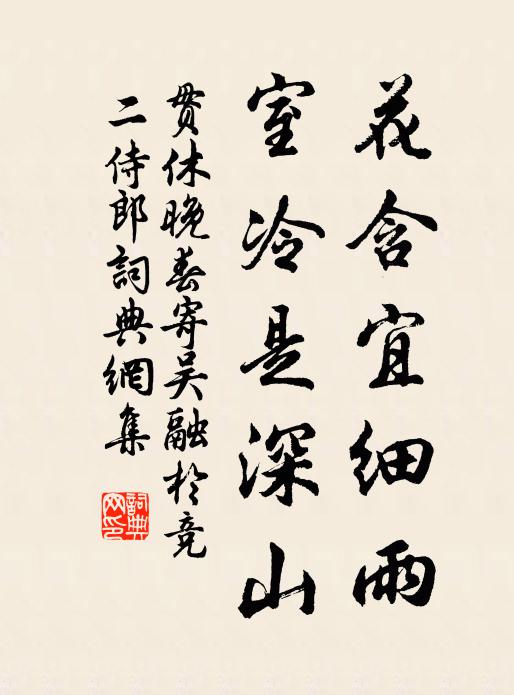 花含宜細雨
室冷是深山
貫休晚春寄吴融於竞
二侍郎詞典網集
詞典网印